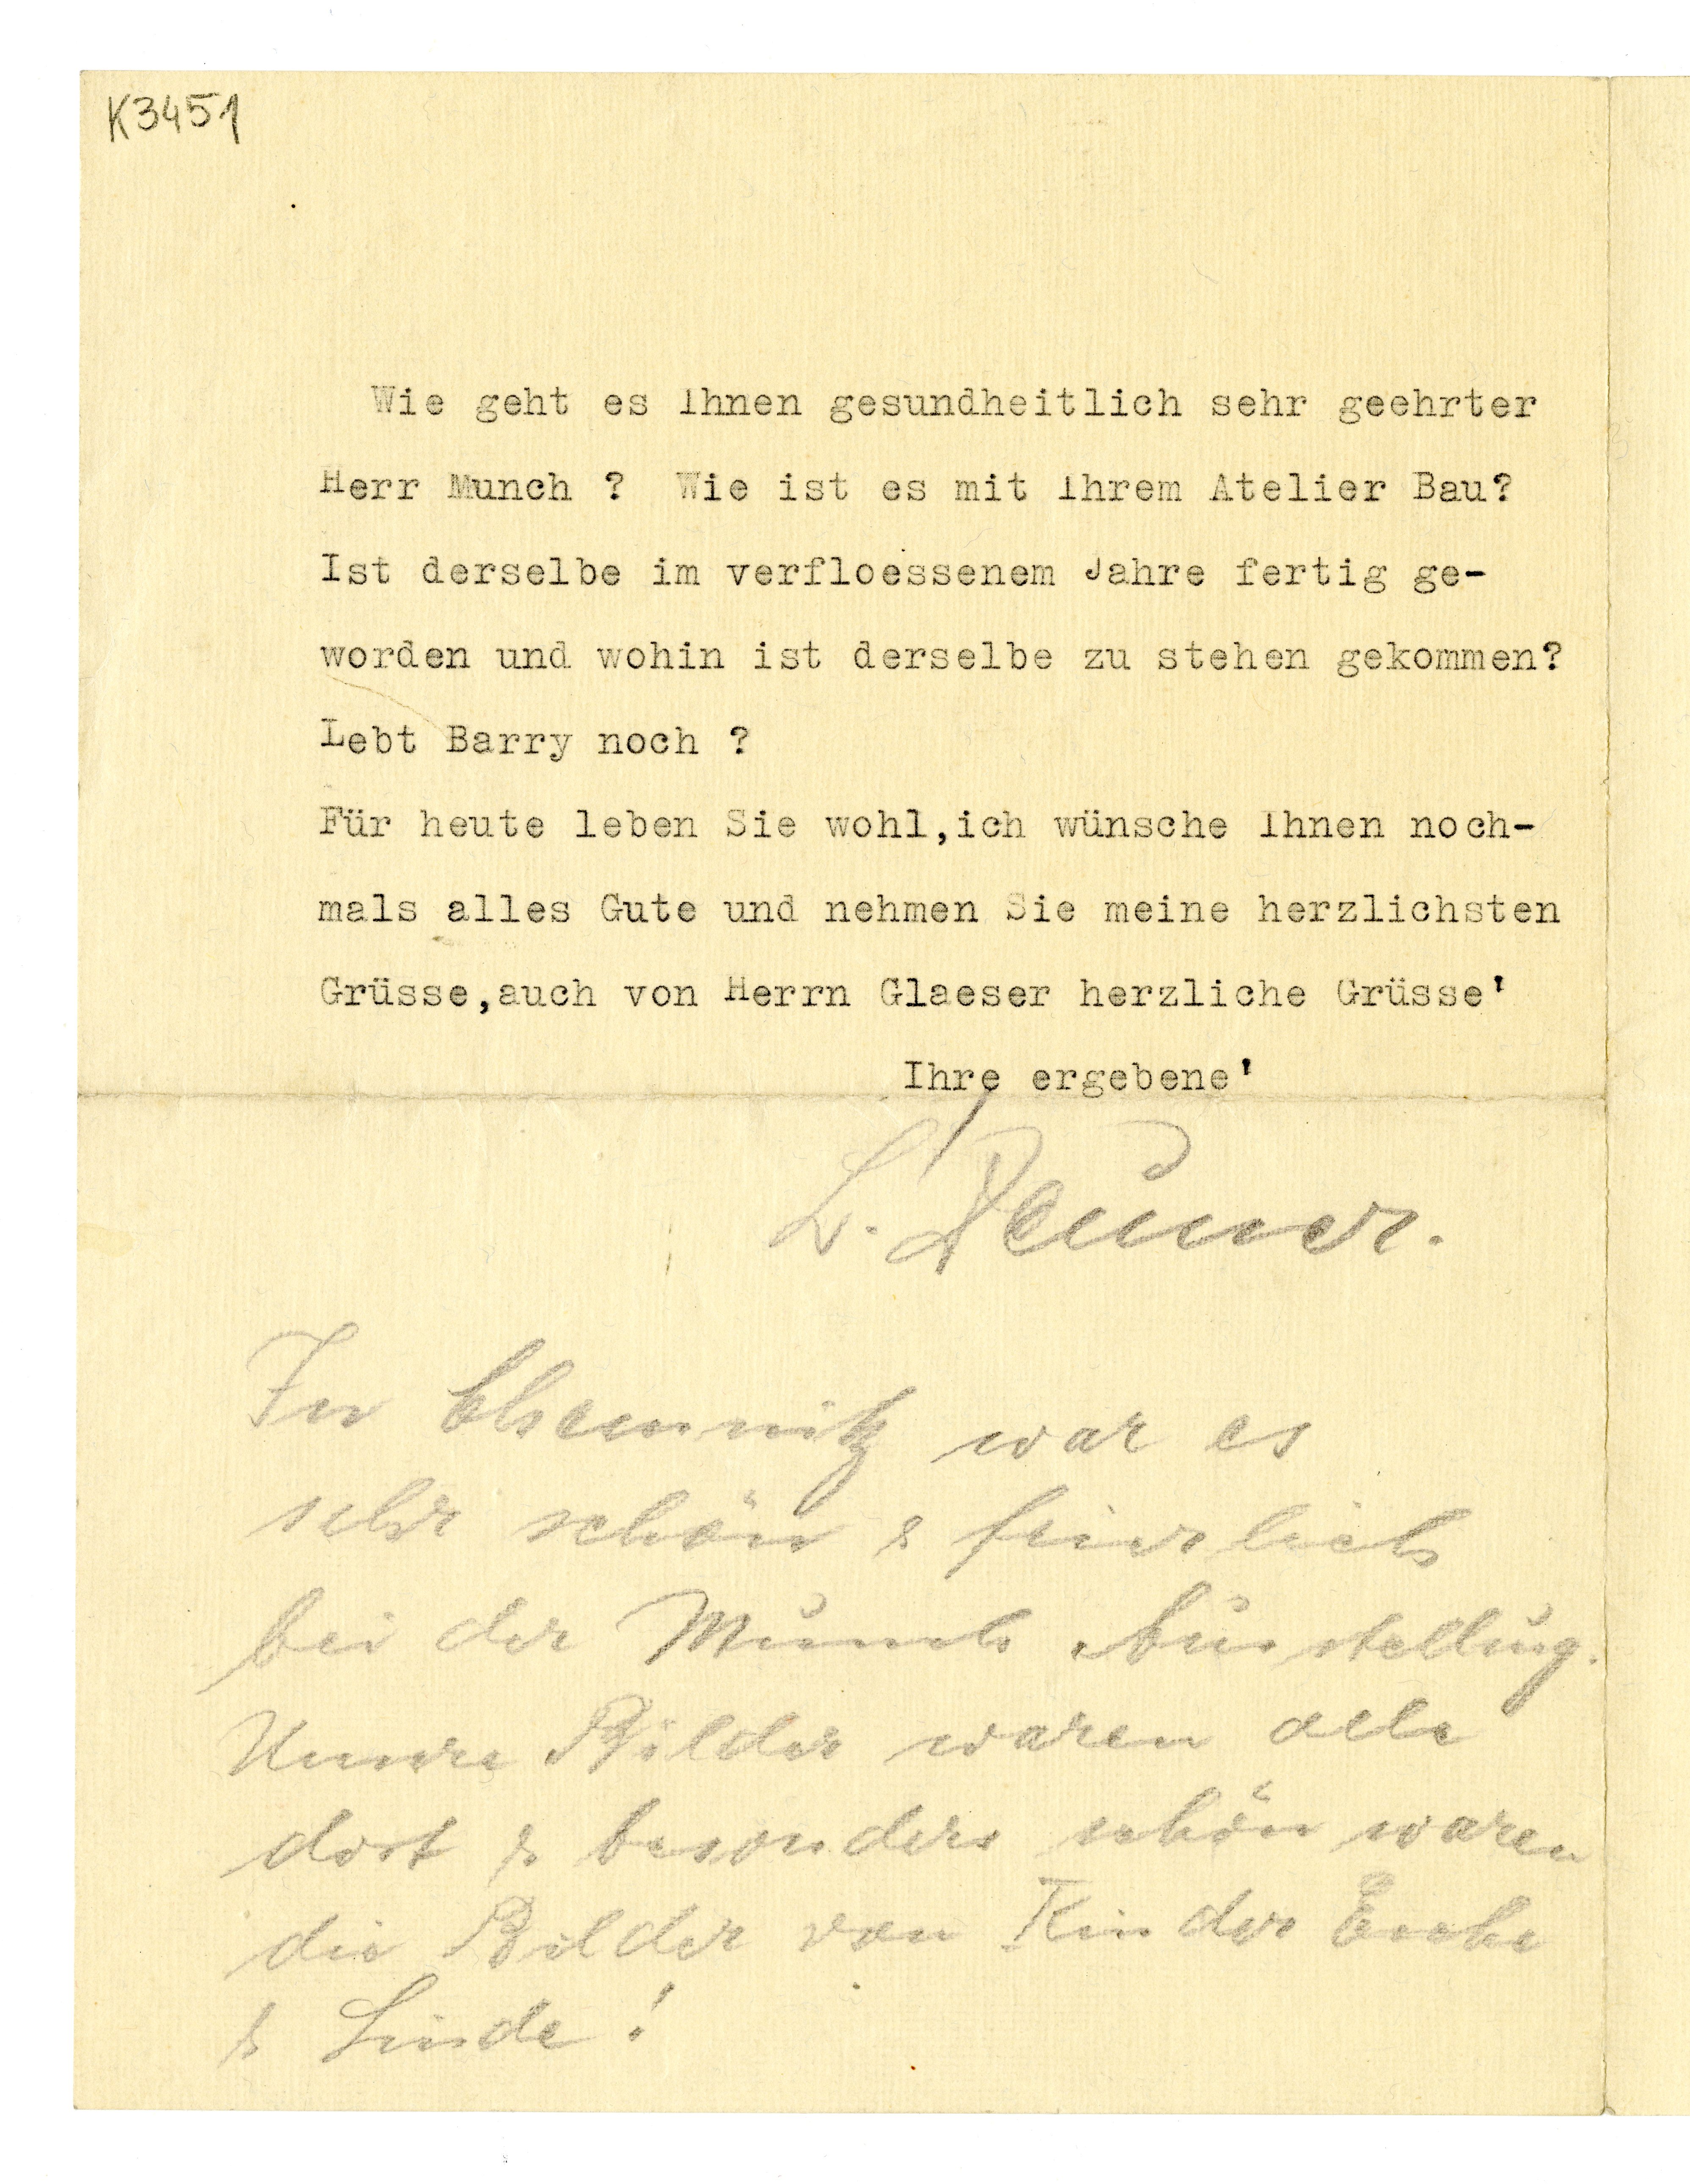 K3451
Wie geht es Ihnen gesundheitlich sehr geehrter
Herr Munch ? Wie ist es mit Ihrem Atelier Bau?
Ist derselbe im verfloessenem Jahre fertig ge-
worden und wohin ist derselbe zu stehen gekommen?
Lebt Barry noch ?
Für heute leben Sie wohl,ich wünsche Ihnen noch-
mals alles Gute und nehmen Sie meine herzlichsten
Grüsse,auch von Herrn Glaeser herzliche Grüsse'
Ihre ergebene'
L.
In Chemnitz war es
sehr schön & feierlich
bei der Munch Ausstellung.
Unsere Bilder waren alle
dort & besonders schön waren
die Bilder von Kinder Esche
& Linde !